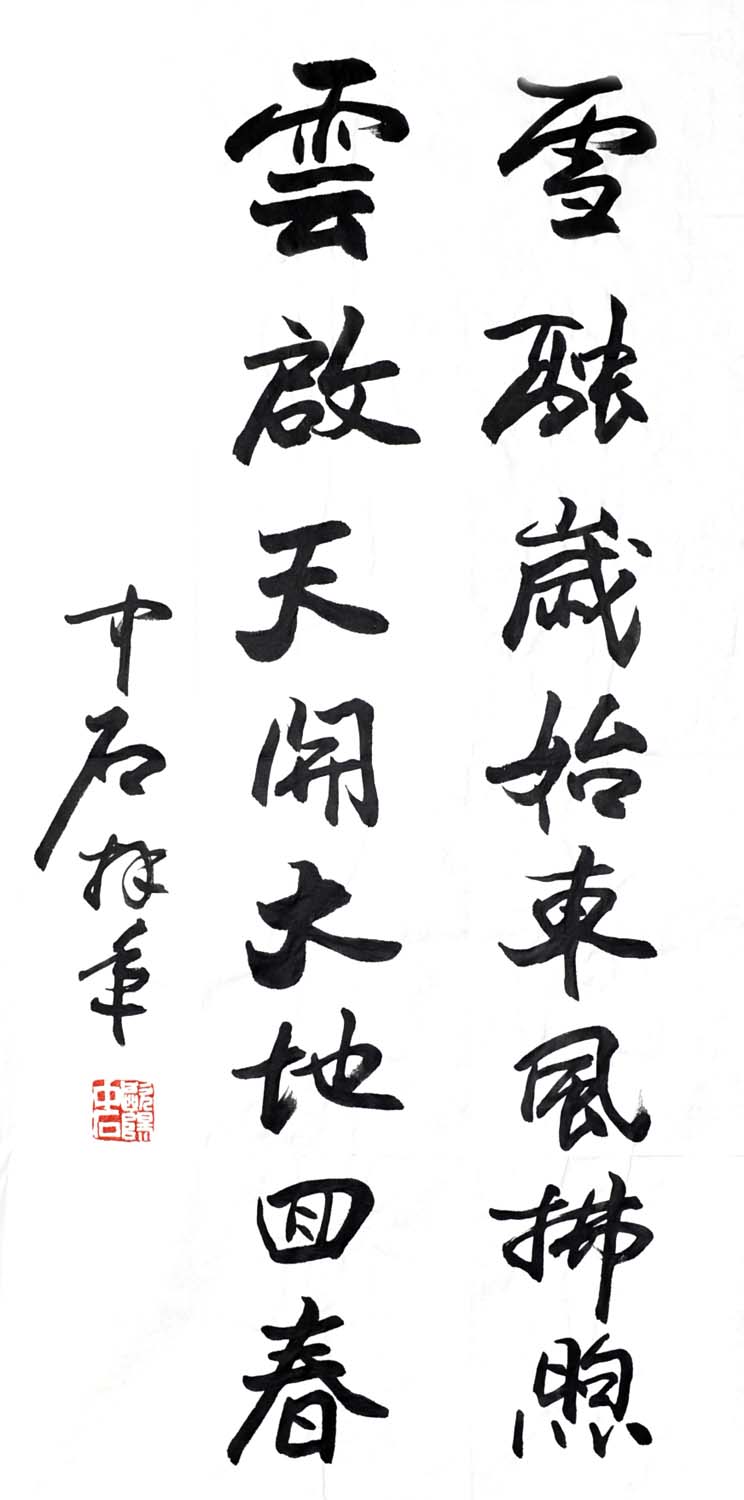 雪融歲始東風拂煦
雲啟天開大地回春
中石拜年
歐陽中石